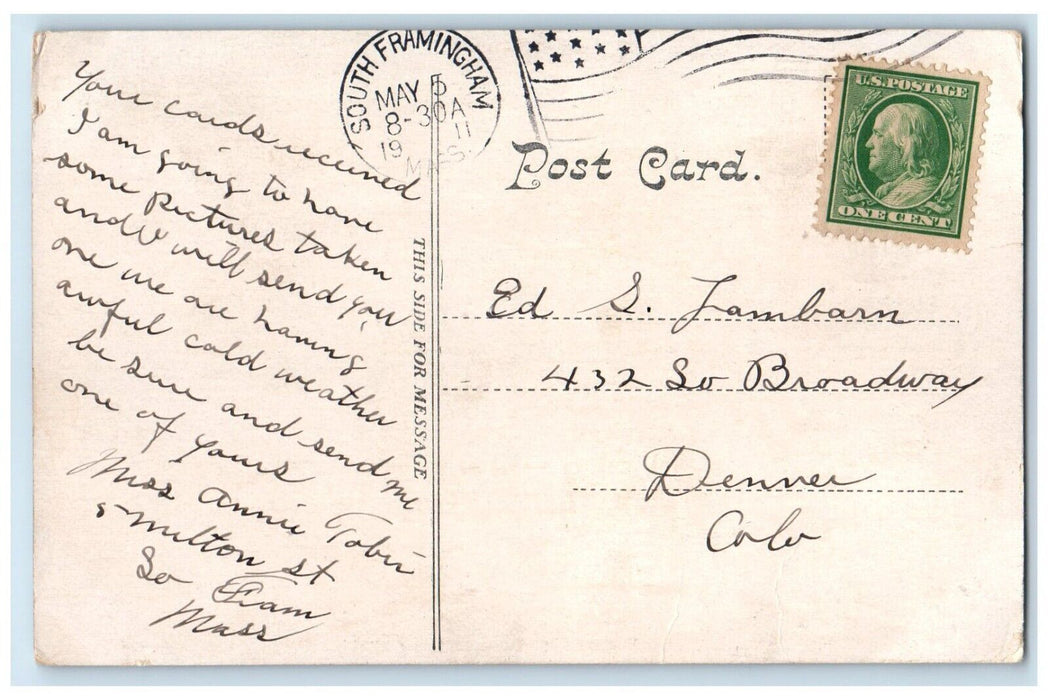 Your cards received
I am going to have
some Pictures taken
and will send you
one we are having
awful cold weather
be sure and send me
one of yours
Miss Annie Tobin
5 Milton st
So Fram
Mass
THIS SIDE FOR MESSAGE
SOUTH FRAMINGHAM
MAY 5
8-30A
1911
MASS.
U.S. POSTAGE
ONE CENT
Post Card.
Ed S. Lambarn
432 So Broadway
Denver
Colo